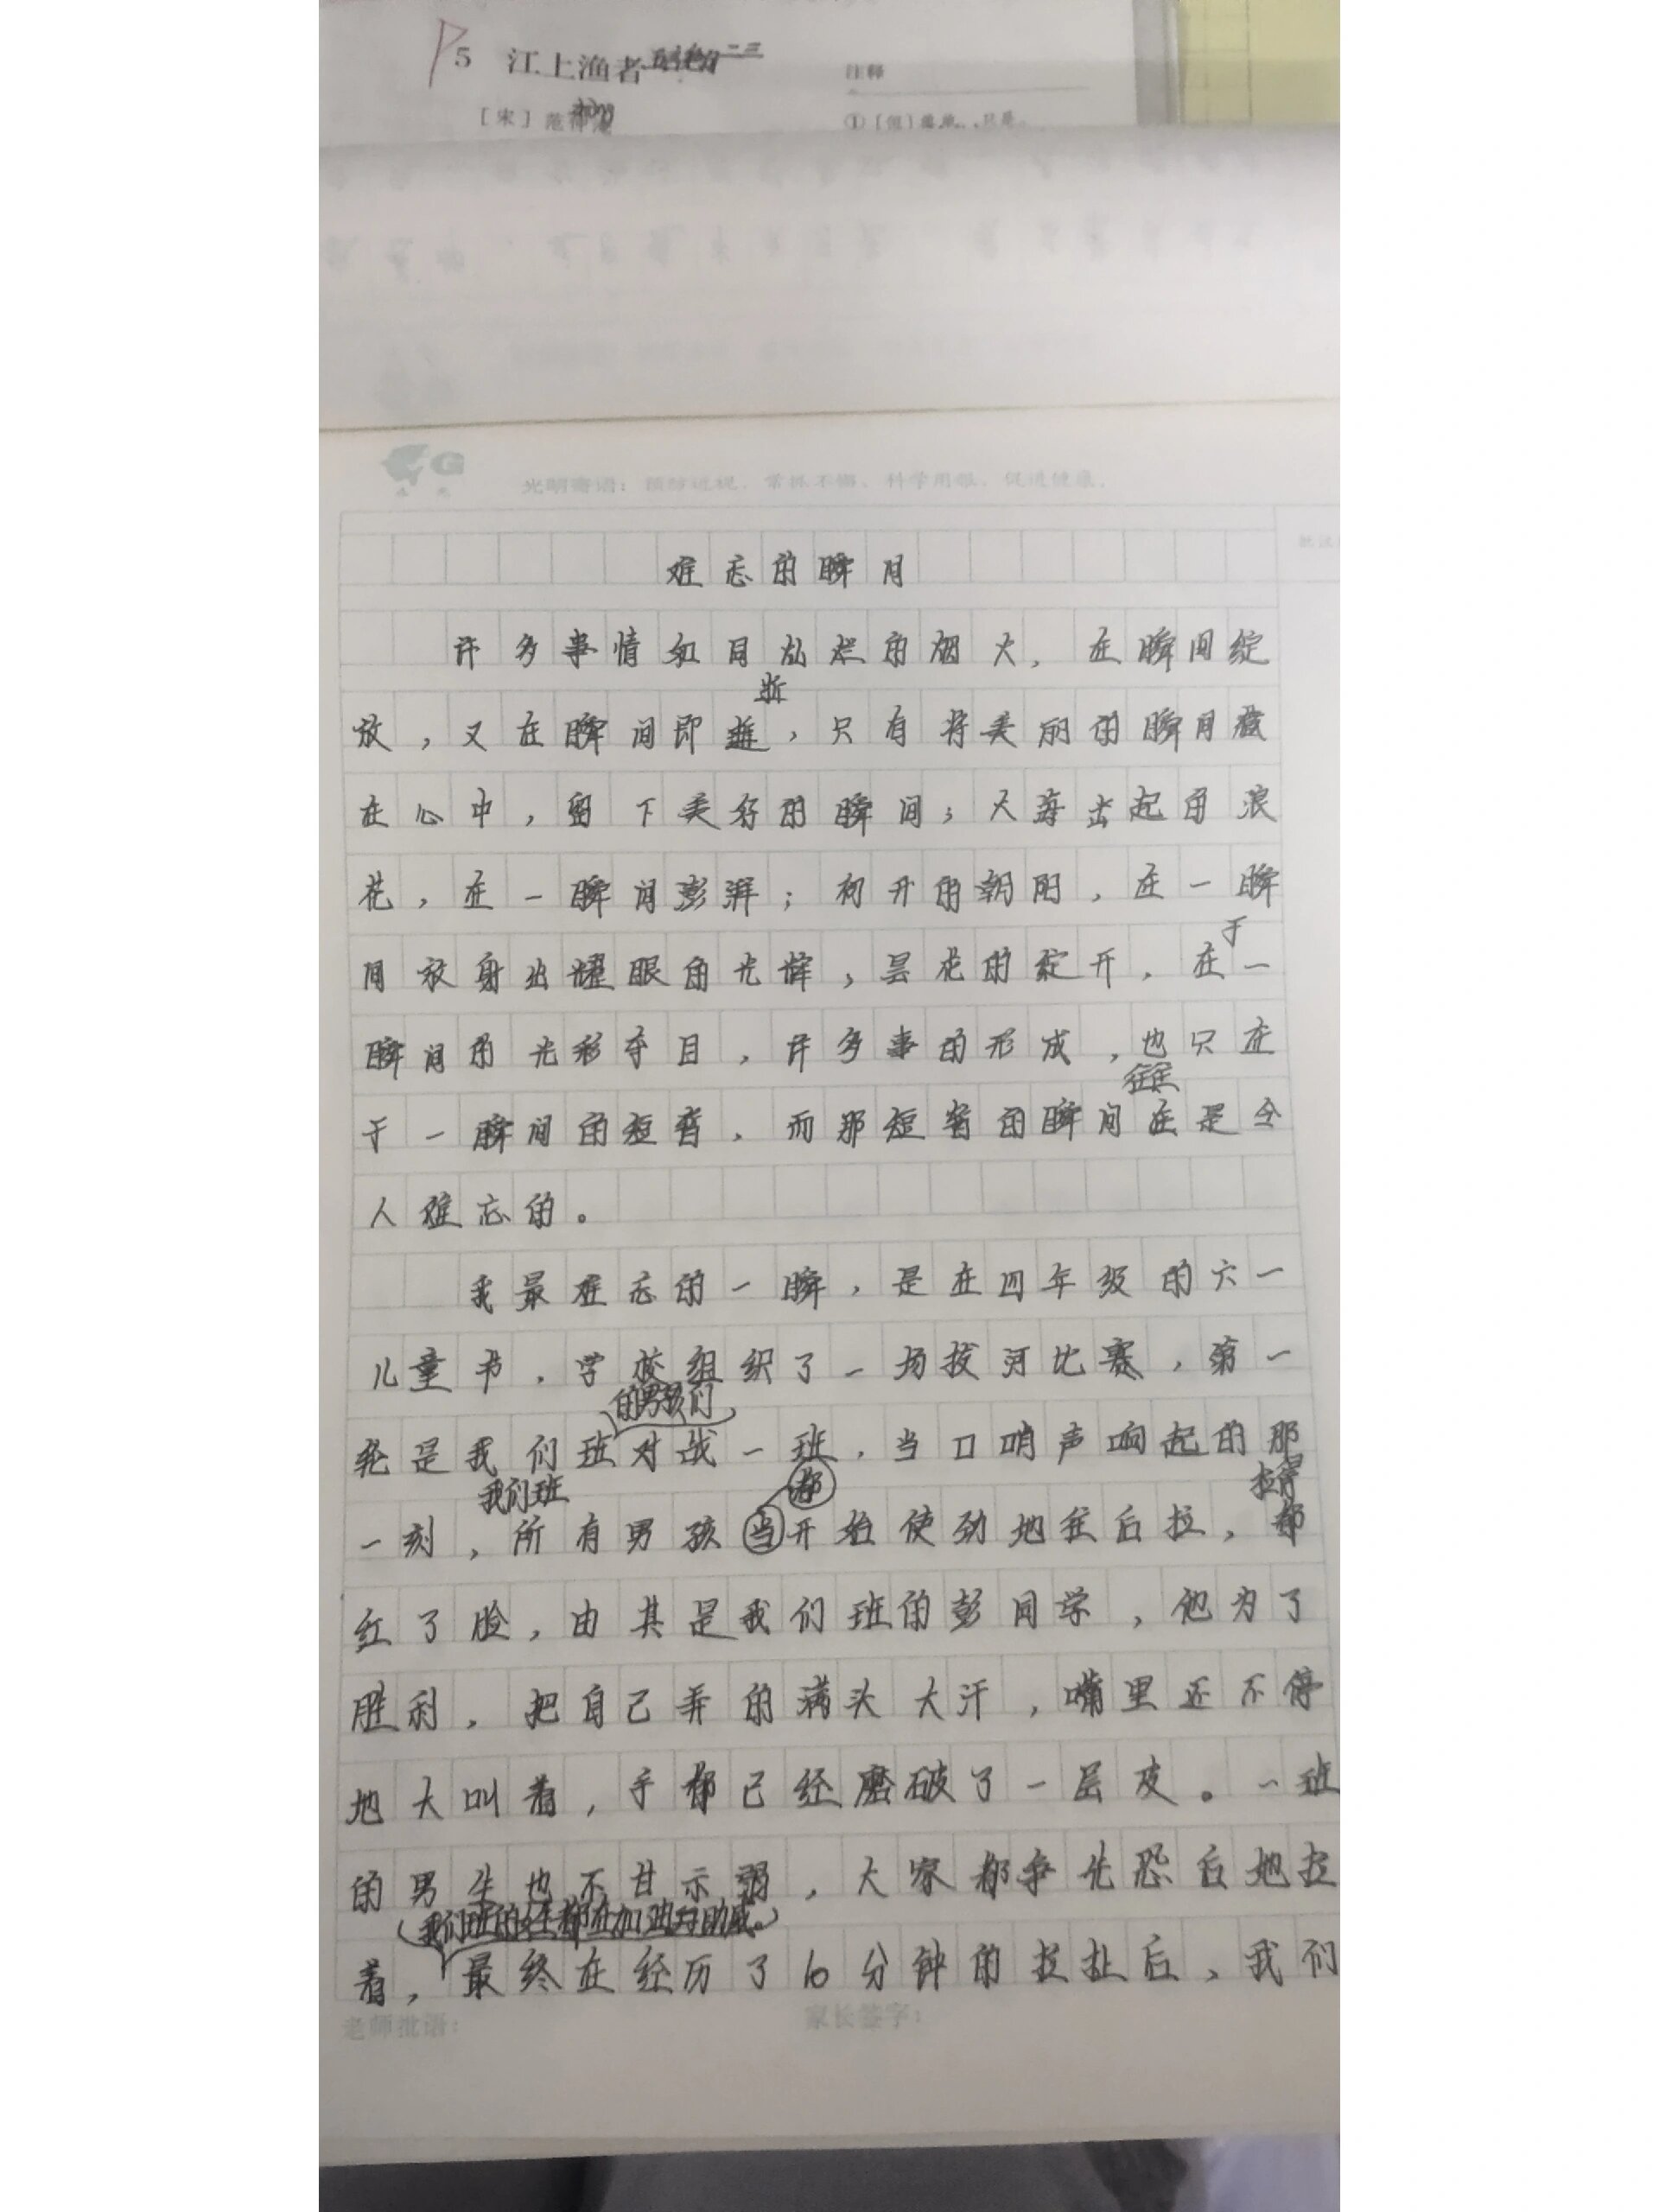 P5 江上渔者
[宋] 范仲淹
注释
光明寄语：预防近视，常抓不懈，科学用眼，促进健康。
难忘的瞬间
许多事情如同灿烂的烟火，在瞬间绽
逝
放，又在瞬间即，只有将美丽的瞬间藏
在心中，留下美好的瞬间；大海出起的浪
花，在一瞬间澎湃；初升的朝阳，在一瞬
于
间放射出耀眼的光辉，昙花的绽开，在一
瞬间的光彩夺目，许多事的形成，也只在
往往
于一瞬间的短暂，而那短暂的瞬间在是令
人难忘的。
我最难忘的一瞬，是在四年级的六一
儿童节，学校组织了一场拔河比赛，第一
的男孩们
轮是我们班对战一班，当口哨声响起的那
我们班 都 拉得
一刻，所有男孩当开始使劲地往后拉，都
红了脸，由其是我们班的彭同学，他为了
胜利，把自己弄的满头大汗，嘴里还不停
地大叫着，手都已经磨破了一层皮。一班
的男生也不甘示弱，大家都争先恐后地拉
（我们班的女生都在加油与助威。）
着，最终在经历了10分钟的拉扯后，我们
老师批语： 家长签字：